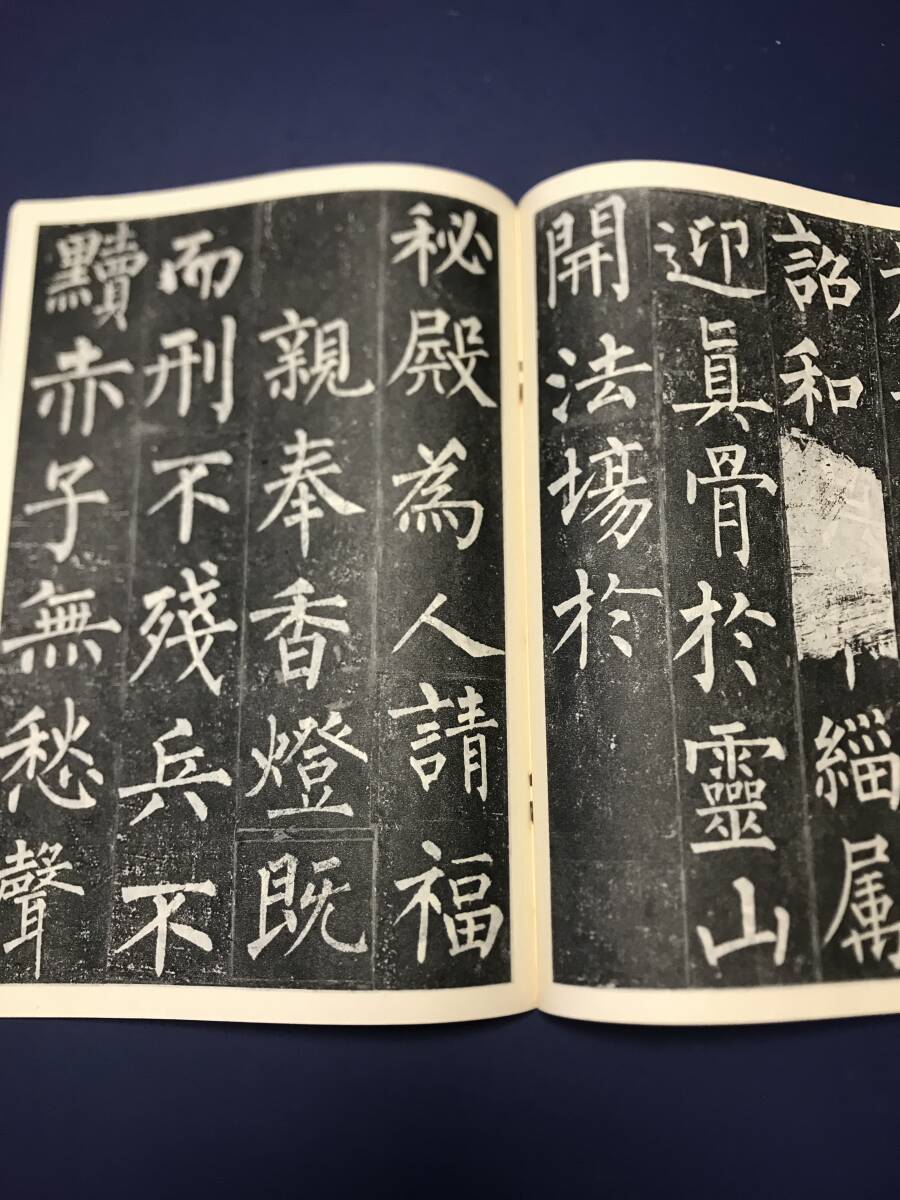 詔和緇属
迎眞骨於靈山
開法場於
秘殿為人請福
親奉香燈既
而刑不殘兵不
黷赤子無愁聲